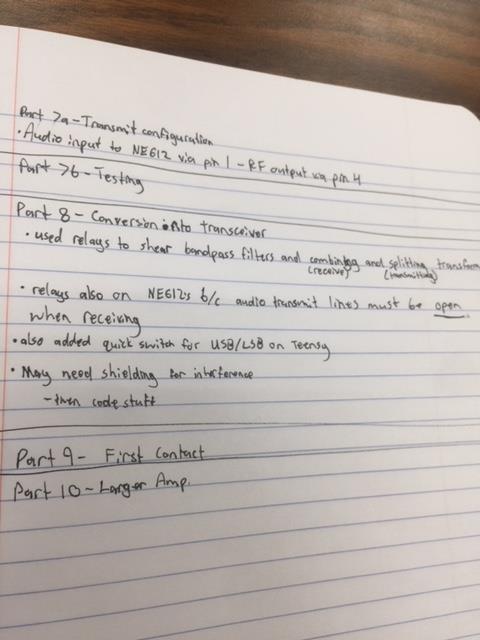 Part 7a - Transmit configuration
• Audio input to NE612 via pin 1 - RF output via pin 4
Part 7b - Testing
Part 8 - Conversion into transceiver
• used relays to shear bandpass filters and combining and splitting transform
(receive) (transmitting)
• relays also on NE612s b/c audio transmit lines must be open
when receiving
• also added quick switch for USB/LSB on Teensy
• May need shielding for interference
- then code stuff
Part 9 - First Contact
Part 10 - Larger Amp.